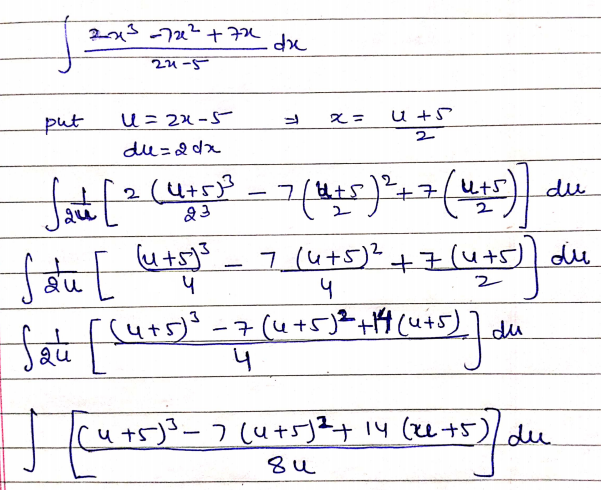 ∫ (2x³ - 7x² + 7x)/(2x-5) dx
put u = 2x-5 ⇒ x = (u+5)/2
du = 2dx
∫ 1/2u [ 2 (u+5)³/2³ - 7 ((u+5)/2)² + 7 ((u+5)/2) ] du
∫ 1/2u [ (u+5)³/4 - 7 (u+5)²/4 + 7 (u+5)/2 ] du
∫ 1/2u [ ((u+5)³ - 7 (u+5)² + 14 (u+5))/4 ] du
∫ [ ((u+5)³ - 7 (u+5)² + 14 (u+5))/8u ] du